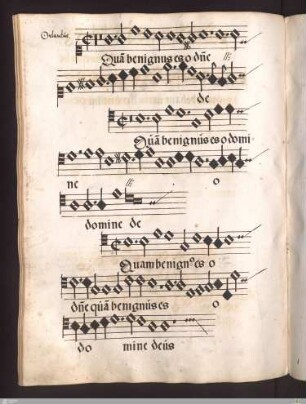 Orlandus.
Quā benignus es o dn̄e
de
Quā benignus es o domi-
ne o
domine de
Quam benign⁹ es o
dn̄e quā benignus es o
do mine deus